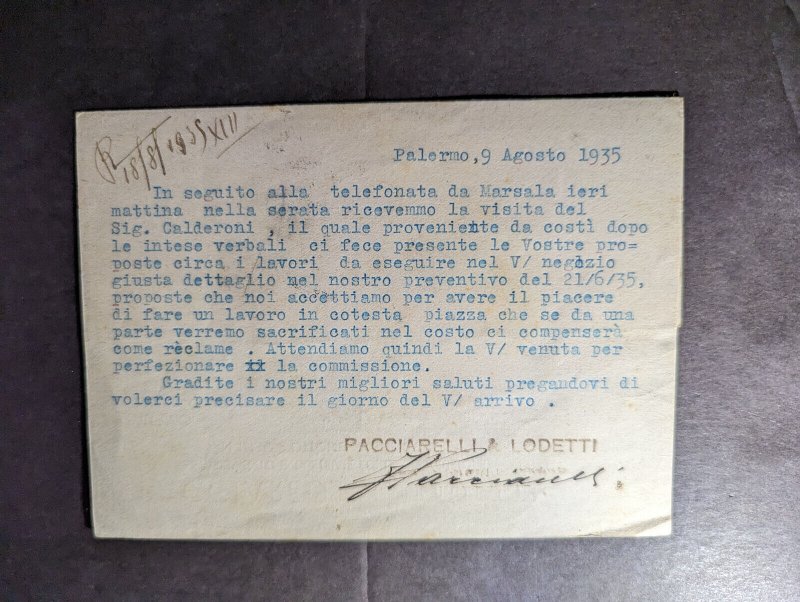 R 18/8/1935 XIII
Palermo, 9 Agosto 1935
In seguito alla telefonata da Marsala ieri
mattina nella serata ricevemmo la visita del
Sig. Calderoni , il quale proveniente da costì dopo
le intese verbali ci fece presente le Vostre pro=
poste circa i lavori da eseguire nel V/ negozio
giusta dettaglio nel nostro preventivo del 21/6/35,
proposte che noi accettiamo per avere il piacere
di fare un lavoro in cotesta piazza che se da una
parte verremo sacrificati nel costo ci compenserà
come rèclame . Attendiamo quindi la V/ venuta per
perfezionare la commissione.
Gradite i nostri migliori saluti pregandovi di
volerci precisare il giorno del V/ arrivo .
PACCIARELLI & LODETTI